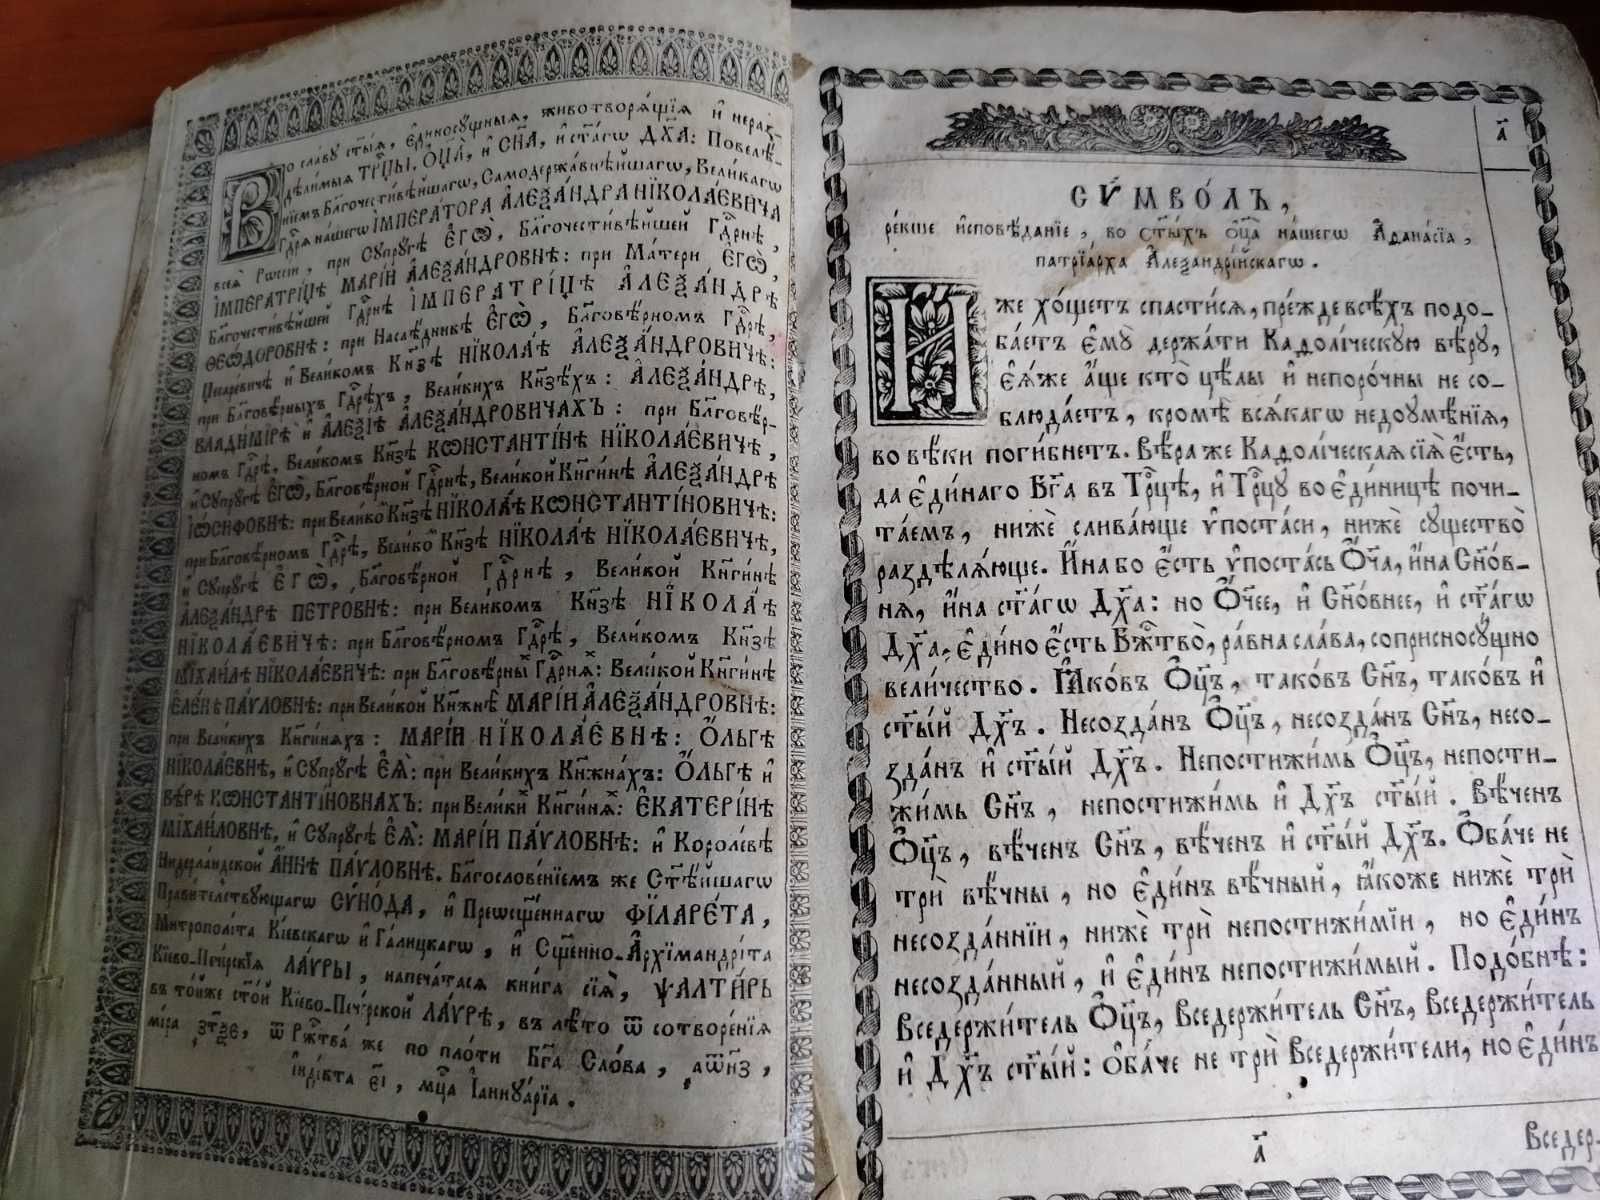 Во славу ст҃ыѧ, є҆диносꙋщныѧ, животворѧ́щїѧ и҆ нераз-
дѣли́мыѧ ТРЦⷪ҇Ы, Ѻ҆Ц҃А̀, и҆ СН҃А, и҆ ст҃а́гѡ ДХ҃А: Повелѣ́-
нїемъ Бл҃гочести́вѣйшагѡ, Самодержа́внѣйшагѡ, Вели́кагѡ
Гдⷭ҇рѧ на́шегѡ І҆МПЕРА́ТОРА А҆ЛЕѮА́НДРА НІКОЛА́ЕВИЧА
всеѧ̀ Рѡссі́и, при Сꙋпрꙋ́гѣ Є҆ГѠ̀, Бл҃гочести́вѣйшей Гдⷭ҇рнѣ,
І҆МПЕРАТРІ́ЦѢ МАРІ́И А҆ЛЕѮА́НДРОВНѢ: при Ма́тери Є҆ГѠ̀,
Бл҃гочести́вѣйшей Гдⷭ҇рнѣ І҆МПЕРАТРІ́ЦѢ А҆ЛЕѮА́НДРѢ
ѲЕѠ́ДОРОВНѢ: при Наслѣ́дникѣ Є҆ГѠ̀, Бл҃говѣ́рномъ Гдⷭ҇рѣ,
Цесаре́вичѣ и҆ Вели́комъ Кн҃зѣ НІКОЛА́Ѣ А҆ЛЕѮА́НДРОВИЧѢ:
при Бл҃говѣ́рныхъ Гдⷭ҇рѣхъ, Вели́кихъ Кн҃зѣхъ: А҆ЛЕѮА́НДРѢ,
ВЛАДИ́МІРѢ и҆ А҆ЛЕѮІ́Ѣ А҆ЛЕѮА́НДРОВИЧАХЪ: при Бл҃говѣ́р-
номъ Гдⷭ҇рѣ, Вели́комъ Кн҃зѣ КѠНСТАНТІ́НѢ НІКОЛА́ЕВИЧѢ,
и҆ Сꙋпрꙋ́гѣ Є҆ГѠ̀, Бл҃говѣ́рной Гдⷭ҇рнѣ, Вели́кой Кнг҃и́нѣ А҆ЛЕѮА́НДРѢ
І҆Ѡ́СИФОВНѢ: при Вели́комъ Кн҃зѣ НІКОЛА́Ѣ КѠНСТАНТІ́НОВИЧѢ:
при Бл҃говѣ́рномъ Гдⷭ҇рѣ, Вели́комъ Кн҃зѣ НІКОЛА́Ѣ НІКОЛА́ЕВИЧѢ,
и҆ Сꙋпрꙋ́гѣ Є҆ГѠ̀, Бл҃говѣ́рной Гдⷭ҇рнѣ, Вели́кой Кнг҃и́нѣ
А҆ЛЕѮА́НДРѢ ПЕТРО́ВНѢ: при Вели́комъ Кн҃зѣ НІКОЛА́Ѣ
НІКОЛА́ЕВИЧѢ: при Бл҃говѣ́рномъ Гдⷭ҇рѣ, Вели́комъ Кн҃зѣ
МІХАИ́ЛѢ НІКОЛА́ЕВИЧѢ: при Бл҃говѣ́рныⷯ Гдⷭ҇рнѧⷯ: Вели́кой Кнг҃и́нѣ
Є҆ЛЕ́НѢ ПА́ѴЛОВНѢ: при Вели́кой Кнѧжнѣ̀ МАРІ́И А҆ЛЕѮА́НДРОВНѢ:
при Вели́кихъ Кнг҃и́нѧхъ: МАРІ́И НІКОЛА́ЕВНѢ: Ѻ҆́ЛЬГѢ
НІКОЛА́ЕВНѢ, и҆ Сꙋпрꙋ́гѣ Є҆Ѧ̀: при Вели́кихъ Кн҃жна́хъ: Ѻ҆́ЛЬГѢ и҆
ВѢ́РѢ КѠНСТАНТІ́НОВНАХЪ: при Вели́киⷯ Кнг҃и́нѧⷯ: Є҆КАТЕРІ́НѢ
МІХАИ́ЛОВНѢ, и҆ Сꙋпрꙋ́гѣ Є҆Ѧ̀: МАРІ́И ПА́ѴЛОВНѢ: и҆ Короле́вѣ
Нидерла́ндской А҆́ННѢ ПА́ѴЛОВНѢ. Бл҃гослове́нїемъ же Ст҃ѣ́йшагѡ
Прави́телствꙋющагѡ СѴНО́ДА, и҆ Преѡсщ҃е́ннагѡ ФІЛАРЕ́ТА,
Митрополі́та Кі́евскагѡ и҆ Га́лицкагѡ, и҆ Сщ҃е́нно-А҆рхїмандрі́та
Кі́ево-Пече́рскїѧ ЛА́ѴРЫ, напеча́тасѧ кни́га сїѧ̀, ѰАЛТИ́РЬ
въ то́йже ст҃о́й Кі́ево-Пече́рской ЛА́ѴРѢ, въ лѣ́то ѿ сотворе́нїѧ
мі́ра ҂зт҃ѯе, ѿ Ржⷭ҇тва́ же по пло́ти Бг҃а Сло́ва, ҂аѡн҃з,
і҆нді́кта є҃і, мцⷭ҇а І҆аннꙋа́рїа.
а҃
СѴ́МВО́ЛЪ,
ре́кше и҆сповѣ́данїе, во ст҃ы́хъ ѻ҆ц҃а̀ на́шегѡ А҆ѳана́сїа,
патрїа́рха А҆леѯандрі́йскагѡ.
И҆́же хо́щетъ спасти́сѧ, пре́жде всѣ́хъ подо-
ба́етъ є҆мꙋ̀ держа́ти Каѳолі́ческꙋю вѣ́рꙋ,
є҆ѧ́же а҆́ще кто̀ цѣ́лы и҆ непоро́чны не со-
блюда́етъ, кромѣ̀ всѧ́кагѡ недоꙋмѣ́нїѧ,
во вѣ́ки поги́бнетъ. Вѣ́ра же Каѳолі́ческаѧ сїѧ̀ є҆́сть,
да є҆ди́наго Бг҃а въ Трⷪ҇цѣ, и҆ Трⷪ҇цꙋ во є҆ди́ницѣ почи-
та́емъ, нижѐ слива́юще ѵ҆поста́си, нижѐ сꙋщество̀
раздѣлѧ́юще. И҆́на бо є҆́сть ѵ҆поста́сь Ѻ҆́ч҃а, и҆́на Сн҃о́в-
нѧ, и҆́на ст҃а́гѡ Дх҃а: но Ѻ҆́ч҃ее, и҆ Сн҃о́внее, и҆ ст҃а́гѡ
Дх҃а, є҆ди́но є҆́сть Бжⷭ҇тво̀, ра́вна сла́ва, соприсносꙋ́щно
вели́чество. Ꙗ҆ко́въ Ѻ҆ц҃ъ, тако́въ Сн҃ъ, тако́въ и҆
ст҃ы́й Дх҃ъ. Несозда́нъ Ѻ҆ц҃ъ, несозда́нъ Сн҃ъ, несо-
зда́нъ и҆ ст҃ы́й Дх҃ъ. Непостижи́мь Ѻ҆ц҃ъ, непости-
жи́мь Сн҃ъ, непостижи́мь и҆ Дх҃ъ ст҃ы́й. Вѣ́ченъ
Ѻ҆ц҃ъ, вѣ́ченъ Сн҃ъ, вѣ́ченъ и҆ ст҃ы́й Дх҃ъ. Ѻ҆ба́че не
трѝ вѣ́чны, но є҆ди́нъ вѣ́чный, ꙗ҆́коже нижѐ трѝ
несозда́ннїи, нижѐ трѝ непостижи́мїи, но є҆ди́нъ
несозда́нный, и҆ є҆ди́нъ непостижи́мый. Подо́бнѣ:
Вседержи́тель Ѻ҆ц҃ъ, Вседержи́тель Сн҃ъ, Вседержи́тель
и҆ Дх҃ъ ст҃ы́й: ѻ҆ба́че не трѝ Вседержи́тели, но є҆ди́нъ
а҃
Вседер-